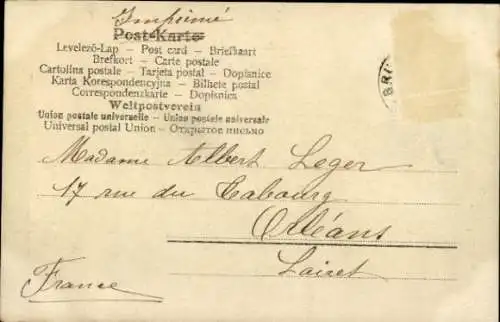 Imprimé
Post-Karte
Levelező-Lap – Post card – Briefkaart
Brefkort – Carte postale
Cartolina postale – Tarjeta postal – Dopisnice
Karta Korespondencyjna – Bilhete postal
Correspondenzkarte – Dopisnica
Weltpostverein
Union postale universelle – Union postale universale
Universal postal Union – Открытое письмо
BRU
Madame Albert Leger
17 rue du Tabourg
Orléans
Loiret
France